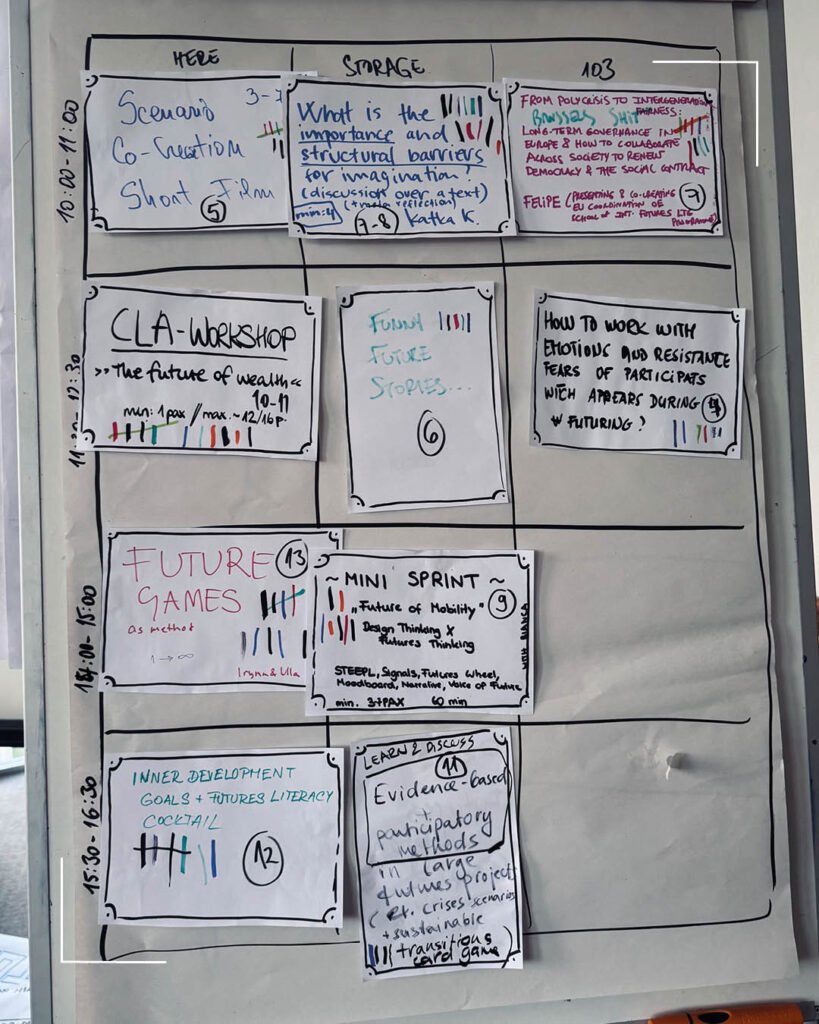 HERE
STORAGE
103
10:00-11:00
Scenario 3-7
Co-Creation
Short Film
5
What is the
importance and
structural barriers
for imagination?
(discussion over a text)
reflection)
min: 4
7-8
Katka K.
FROM POLYCRISIS TO INTERGENERATIONAL FAIRNESS:
BRUSSELS SHIT
LONG-TERM GOVERNANCE IN
EUROPE & HOW TO COLLABORATE
ACROSS SOCIETY TO RENEW
DEMOCRACY & THE SOCIAL CONTRACT
FELIPE (PRESENTING & CO-CREATING
EU COORDINATION OF
SCHOOL OF INT. FUTURES LTG
PROGRAMME)
7
CLA-WORKSHOP
»The future of wealth«
10-11
min: 1 pax / max. ~12/16 p.
FUNNY
FUTURE
STORIES...
6
HOW TO WORK WITH
EMOTIONS AND RESISTANCE
FEARS OF PARTICIPATS
WITCH APPEARS DURING
FUTURING?
15:00
FUTURE 13
GAMES
as method
1→∞
Iryna & Ulla
~ MINI SPRINT ~
"Future of Mobility"
9
Design Thinking X
Futures Thinking
WITH BIANCA
STEEPL, Signals, Futures Wheel,
Moodboard, Narrative, Voice of Future
min. 3+PAX 60 min
15:30-16:30
INNER DEVELOPMENT
GOALS + FUTURES LITERACY
COCKTAIL
12
LEARN & DISCUSS
11
Evidence-based
+
participatory
methods
in large
futures projects
crises scenarios
+ sustainable
transitions
card game)